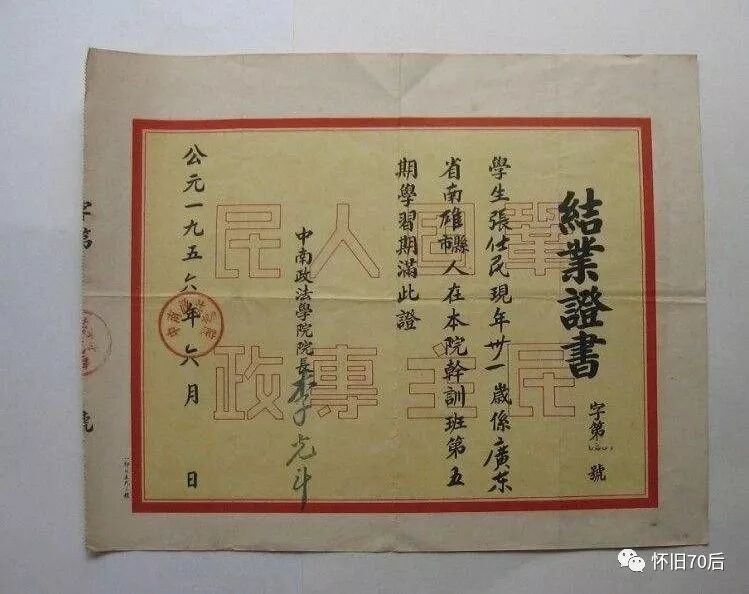 結業證書
字第號
學生張仕民現年卅一歲係廣东
省南雄縣市人在本院幹訓班第五
期學習期滿此證
中南政法學院院長李光斗
公元一九五六年六月 日
鞏國人民
民主專政
字第
號
怀旧70后